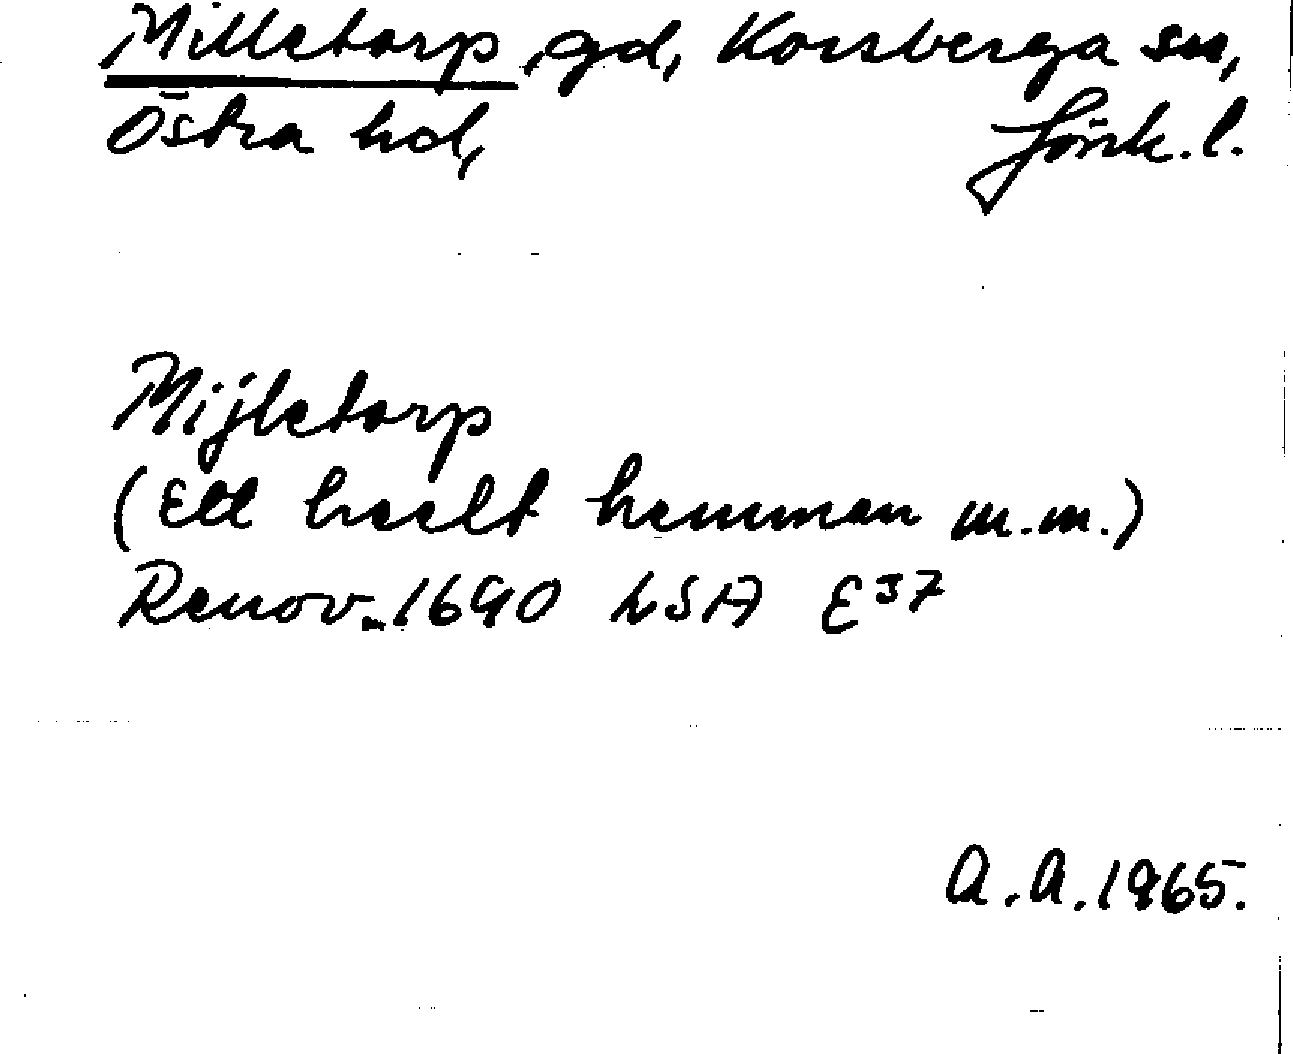 Milletorp, gd, Korsberga sn,
Östra hd, Jönk.l.
Mijletorp
(Ett heelt hemman m.m.)
Renov. 1690 LSA E37
A.A. 1965.